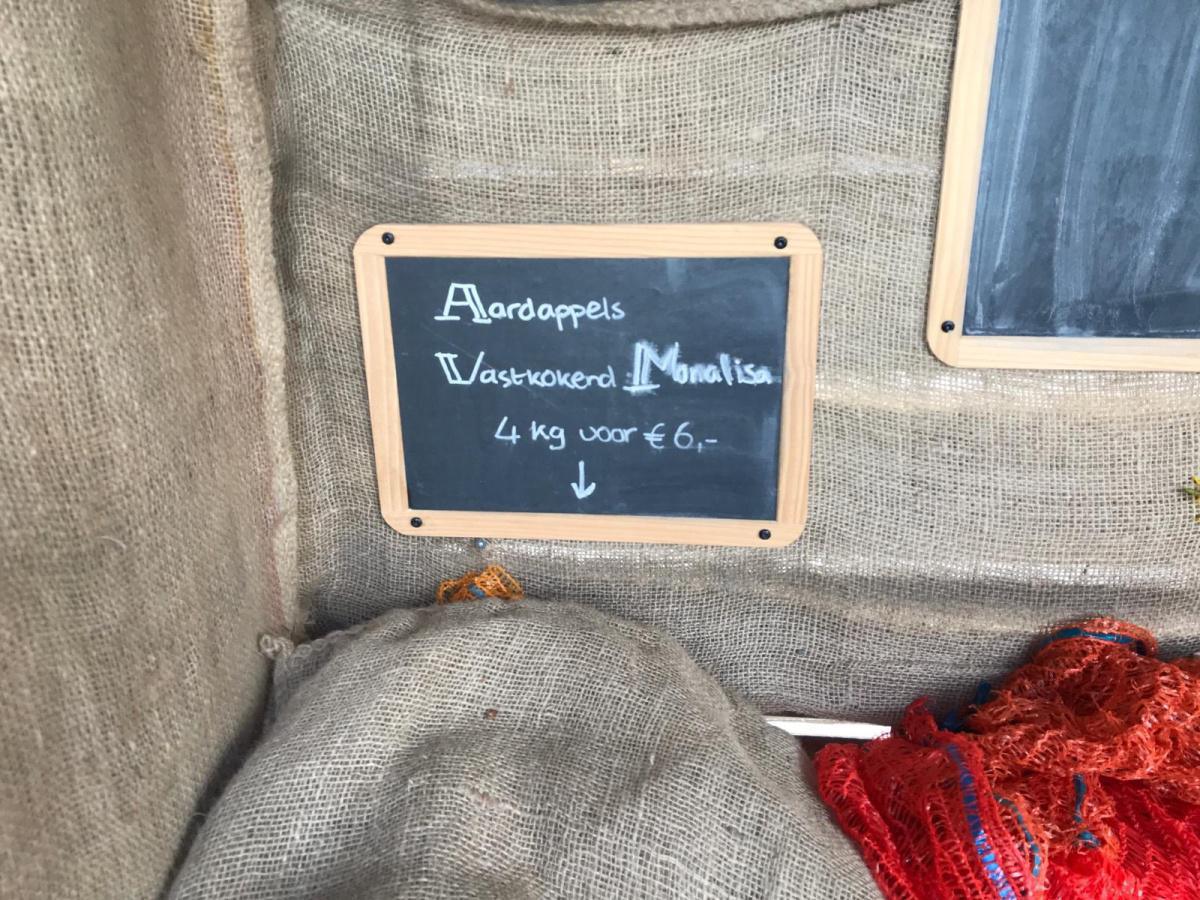 Aardappels
Vastkokend Monalisa
4 kg voor € 6,-